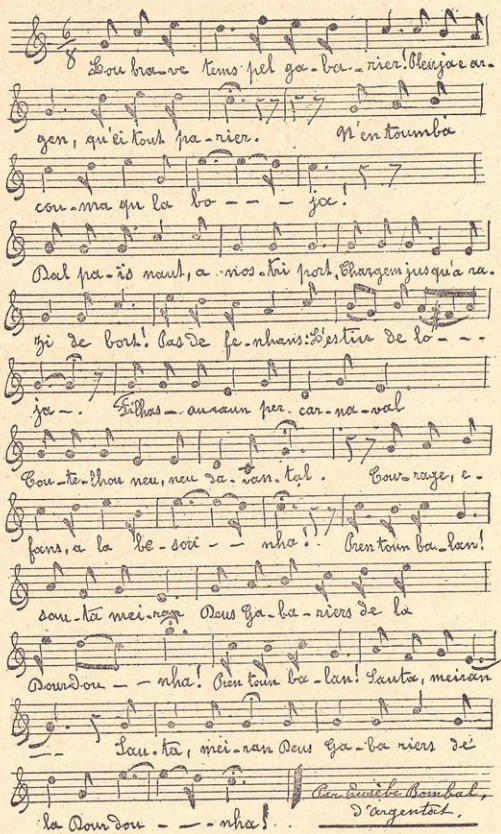 Lou bra-ve tems pel ga-ba-rier! Pleuja e ar-
gen, qu'ei tout pa-rier. N'en toumba
cou-ma qu la bo - - - ja!
Dal pa-is naut, a nos-tri port, Chargem jusqu'a ra-
zi de bort! Pas de fe-nhans: L'estiu de lo - - -
ja -. Filhas - auraun per car-na-val
Cou-te-lhou neu, neu da-van-tal. Cou-rage, e-
fans, a la be-soui - - nha! Pren toun ba-lan!
sau-ta mei-ran Deus Ga-ba-riers de la
Dourdou - - nha! Pren toun ba-lan! Sauta, meiran
- - Sau-ta, mei-ran Deus Ga-ba riers de
la Dour dou - - - nha!
Par Eusèbe Bombal,
d'argentat.